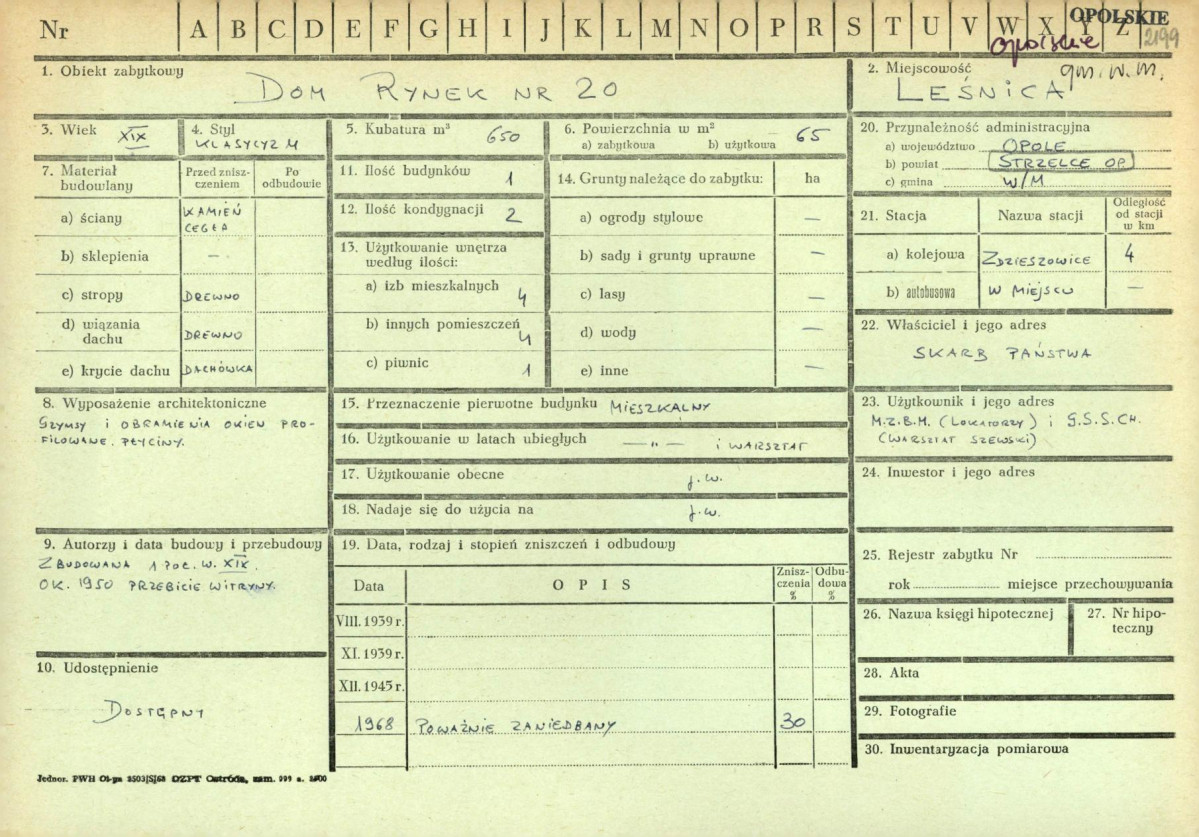 Nr A B C D E F G H I J K L M N O P R S T U V W X Y Z
OPOLSKIE
opolskie
2199
1. Obiekt zabytkowy
DOM RYNEK NR 20
2. Miejscowość
gm. w. m.
LEŚNICA
3. Wiek XIX
4. Styl
KLASYCYZM
5. Kubatura m³ 650
6. Powierzchnia w m² 65
a) zabytkowa b) użytkowa
20. Przynależność administracyjna
a) województwo OPOLE
b) powiat STRZELCE OP.
c) gmina W/M
7. Materiał budowlany
Przed zniszczeniem
Po odbudowie
a) ściany KAMIEŃ
CEGŁA
b) sklepienia —
c) stropy DREWNO
d) wiązania dachu DREWNO
e) krycie dachu DACHÓWKA
11. Ilość budynków 1
12. Ilość kondygnacji 2
13. Użytkowanie wnętrza
według ilości:
a) izb mieszkalnych 4
b) innych pomieszczeń 4
c) piwnic 1
14. Grunty należące do zabytku: ha
a) ogrody stylowe —
b) sady i grunty uprawne —
c) lasy —
d) wody —
e) inne —
21. Stacja Nazwa stacji Odległość
od stacji
w km
a) kolejowa ZDZIESZOWICE 4
b) autobusowa W MIEJSCU —
22. Właściciel i jego adres
SKARB PAŃSTWA
8. Wyposażenie architektoniczne
GZYMSY I OBRAMIENIA OKIEN PRO-
FILOWANE. PŁYCINY.
15. Przeznaczenie pierwotne budynku MIESZKALNY
16. Użytkowanie w latach ubiegłych —"— i WARSZTAT
17. Użytkowanie obecne j.w.
18. Nadaje się do użycia na j.w.
23. Użytkownik i jego adres
M.Z.B.M. (LOKATORZY) i G.S.S.CH.
(WARSZTAT SZEWSKI)
24. Inwestor i jego adres
9. Autorzy i data budowy i przebudowy
ZBUDOWANA 1 POŁ. W. XIX.
OK. 1950 PRZEBICIE WITRYNY.
10. Udostępnienie
DOSTĘPNY
19. Data, rodzaj i stopień zniszczeń i odbudowy
Data OPIS Zniszczenia % Odbudowa %
VIII. 1939 r.
XI. 1939 r.
XII. 1945 r.
1968 POWAŻNIE ZANIEDBANY 30
25. Rejestr zabytku Nr
rok miejsce przechowywania
26. Nazwa księgi hipotecznej
27. Nr hipoteczny
28. Akta
29. Fotografie
30. Inwentaryzacja pomiarowa
Jednor. PWH
OZPT Ostróda, zam.